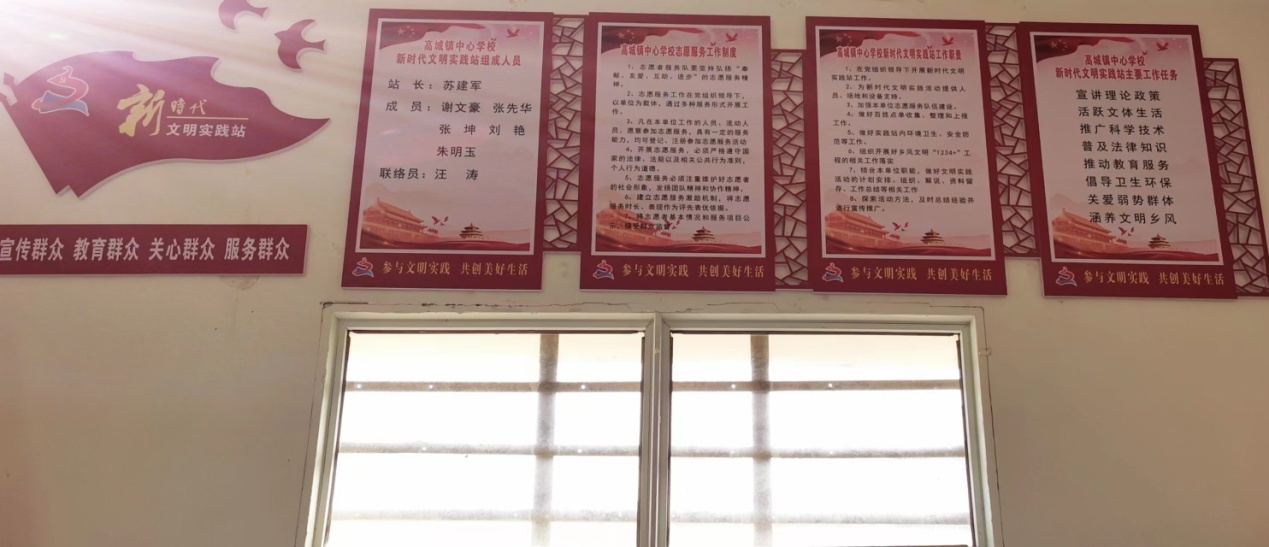 新時代
文明实践站
宣传群众 教育群众 关心群众 服务群众
高城镇中心学校
新时代文明实践站组成人员
站 长：苏建军
成 员：谢文豪 张先华
张 坤 刘 艳
朱明玉
联络员：汪 涛
参与文明实践 共创美好生活
高城镇中心学校志愿服务工作制度
1、志愿者服务队要坚持弘扬“奉
献、友爱、互助、进步”的志愿服务精
神。
2、志愿服务工作在党组织领导下，
以单位为载体，通过多种服务形式开展工
作。
3、凡在本单位工作的人员、流动人
员，愿意参加志愿服务，具有一定的服务
能力，均可登记、注册参加志愿服务活动
4、开展志愿服务，必须严格遵守国
家的法律、法规以及相关公共行为准则，
个人行为道德。
5、志愿服务必须注重维护好志愿者
的社会形象，发扬团队精神和协作精神。
6、建立志愿服务激励机制，将志愿
服务时长、表现作为评先表优依据。
7、将志愿者基本情况和服务项目公
示，接受群众监督。
参与文明实践 共创美好生活
高城镇中心学校新时代文明实践站工作职责
1、在党组织领导下开展新时代文明
实践站工作。
2、为新时代文明实践活动提供人
员、场地和设备支持。
3、加强本单位志愿服务队伍建设。
4、做好百姓点单收集、整理和上报
工作。
5、做好实践站内环境卫生、安全防
范等工作。
6、组织开展好乡风文明“1234+”工
程的相关工作落实
7、结合本单位职能，做好文明实践
活动的计划安排、组织、解说、资料留
存、工作总结等相关工作
8、探索活动方法，及时总结经验并
进行宣传推广。
参与文明实践 共创美好生活
高城镇中心学校
新时代文明实践站主要工作任务
宣讲理论政策
活跃文体生活
推广科学技术
普及法律知识
推动教育服务
倡导卫生环保
关爱弱势群体
涵养文明乡风
参与文明实践 共创美好生活